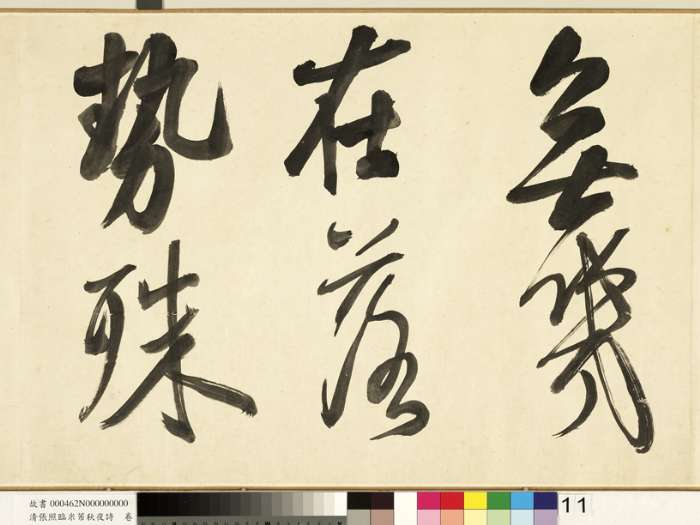 在落
勢殊
故書 000462N000000000
清張照臨米芾秋夜詩 卷
11